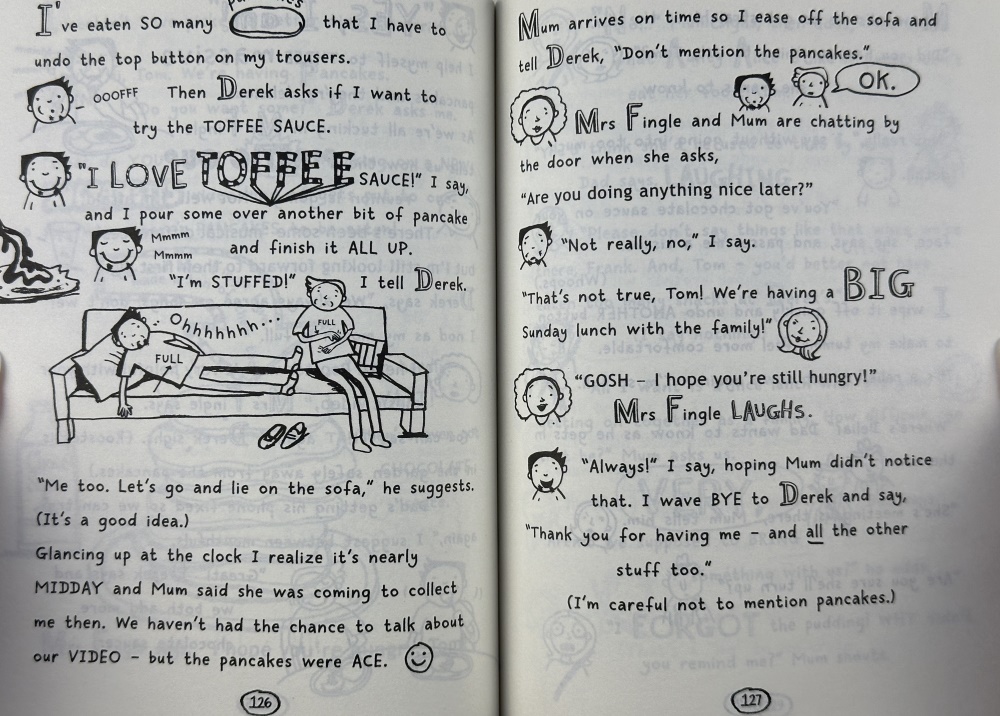 I've eaten SO many pancakes that I have to
undo the top button on my trousers.
OOOFFF Then Derek asks if I want to
try the TOFFEE SAUCE.
"I LOVE TOFFEE SAUCE!" I say,
and I pour some over another bit of pancake
Mmmm
Mmmm
and finish it ALL UP.
"I'm STUFFED!" I tell Derek.
Ohhhhhhh...
FULL
FULL
"Me too. Let's go and lie on the sofa," he suggests.
(It's a good idea.)
Glancing up at the clock I realize it's nearly
MIDDAY and Mum said she was coming to collect
me then. We haven't had the chance to talk about
our VIDEO – but the pancakes were ACE.
126
Mum arrives on time so I ease off the sofa and
tell Derek, "Don't mention the pancakes."
OK.
Mrs Fingle and Mum are chatting by
the door when she asks,
"Are you doing anything nice later?"
"Not really, no," I say.
"That's not true, Tom! We're having a BIG
Sunday lunch with the family!"
"GOSH – I hope you're still hungry!"
Mrs Fingle LAUGHS.
"Always!" I say, hoping Mum didn't notice
that. I wave BYE to Derek and say,
"Thank you for having me – and all the other
stuff too."
(I'm careful not to mention pancakes.)
127